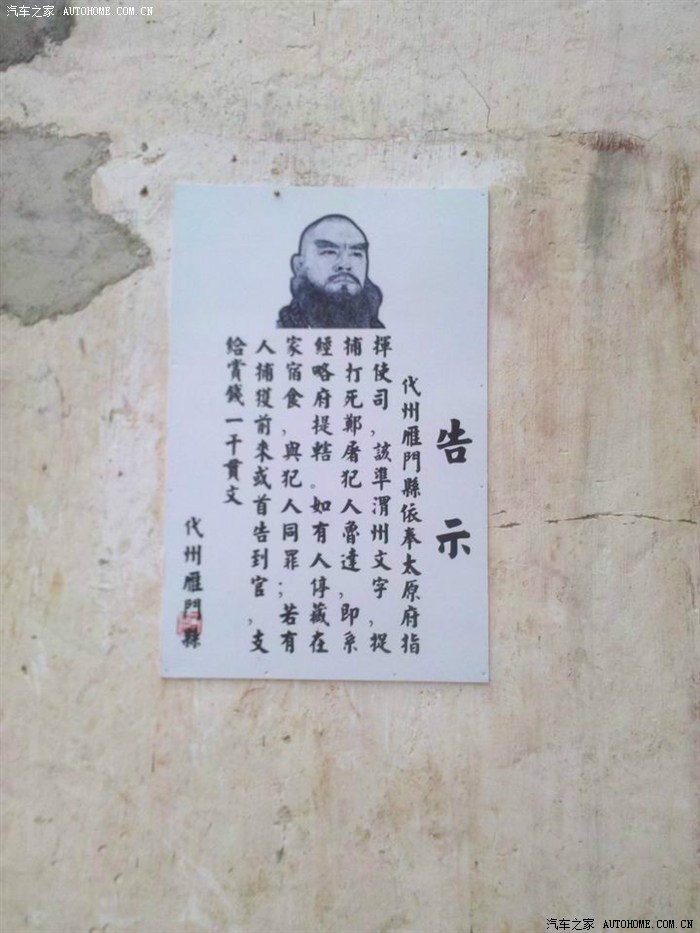 汽车之家 AUTOHOME.COM.CN
告示
代州雁門縣依奉太原府指
揮使司,該準渭州文字,捉
捕打死鄭屠犯人魯達,即系
經略府提轄。如有人停藏在
家宿食,與犯人同罪;若有
人捕獲前來或首告到官,支
給賞錢一千貫文
代州雁門縣
汽车之家 AUTOHOME.COM.CN